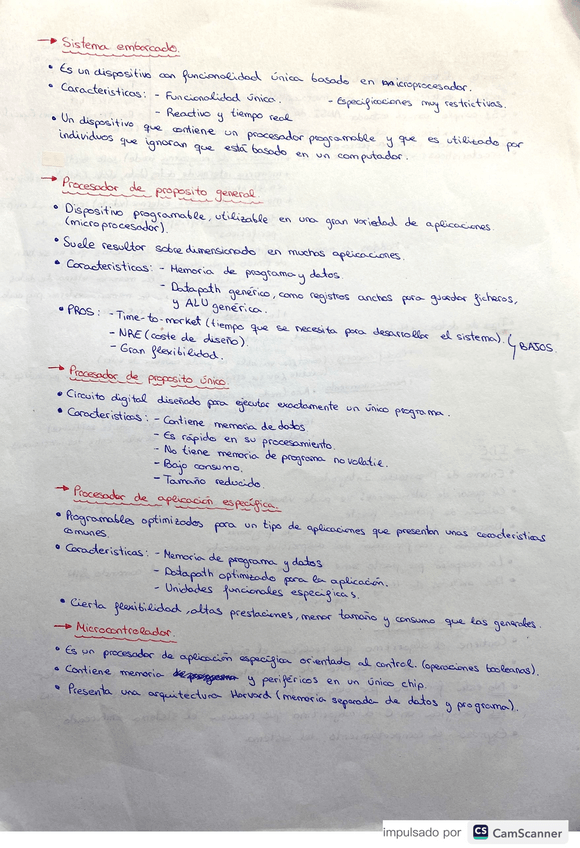 → Sistema embarcado.
• Es un dispositivo con funcionalidad única basado en microprocesador.
• Caracteristicas: - Funcionalidad única. - Especificaciones muy restrictivas.
- Reactivo y tiempo real
• Un dispositivo que contiene un procesador programable y que es utilizado por
individuos que ignoran que está basado en un computador.
→ Procesador de proposito general
• Dispositivo programable, utilizable en una gran variedad de aplicaciones
(microprocesador).
• Suele resultar sobredimensionado en muchas aplicaciones.
• Caracteristicas: - Memoria de programa y datos
- Datapath genérico, como registros anchos para guardar ficheros,
y ALU genérica.
• PROS: - Time-to-market (tiempo que se necesita para desarrollar el sistema). BAJOS
- NRE (coste de diseño).
- Gran flexibilidad.
→ Procesador de proposito único.
• Circuito digital diseñado para ejecutar exactamente un único programa.
• Caracteristicas: - Contiene memoria de datos
- Es rápido en su procesamiento.
- No tiene memoria de programa no volatil.
- Bajo consumo.
- Tamaño reducido.
→ Procesador de aplicación específica.
• Programables optimizados para un tipo de aplicaciones que presentan unas caracteristicas
comunes.
• Caracteristicas: - Memoria de programa y datos
- Datapath optimizado para la aplicación.
- Unidades funcionales especificas.
• Cierta flexibilidad, altas prestaciones, menor tamaño y consumo que las generales.
→ Microcontrolador.
• Es un procesador de aplicación especifica orientado al control. (operaciones booleanas).
• Contiene memoria de programa y periféricos en un único chip.
• Presenta una arquitectura Harvard (memoria separada de datos y programa).
impulsado por CS CamScanner